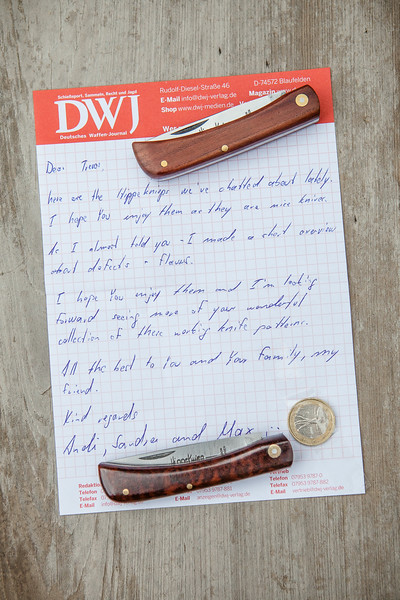 Schießsport, Sammeln, Recht und Jagd
DWJ
Deutsches Waffen-Journal
Rudolf-Diesel-Straße 46 D-74572 Blaufelden
E-Mail info@dwj-verlag.de Magazin
Shop www.dwj-medien.de
Dear
here are the we've chatted about lately.
I hope You enjoy them as they are nice knives.
As I almost told you - I made a short overview
about defects + flaws.
I hope You enjoy them and I'm looking
forward seeing more of your wonderful
collection of these working knife patterns.
All the best to You and Your Family, my
friend.
Kind regards
Andi, Sandra and Max
Redaktion
Telefon
Telefax
E-Mail
07953 9787-0
07953 9787-882
vertrieb@dwj-verlag.de